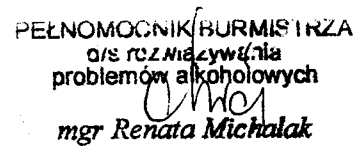 PEŁNOMOCNIK BURMISTRZA
d/s rozwiązywania
problemów alkoholowych
mgr Renata Michalak